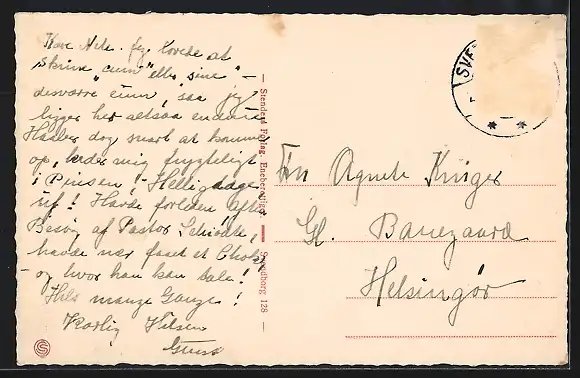 Kære Nete. Jeg lovede at
skrive "cum" eller "sine" –
desværre "cum", saa jeg
ligger her altsaa endnu.
Haaber dog snart at komme
op, keder mig frygteligt
i Pinsen, – Helligdage
uf! Havde forleden Efter
Besøg af Pastor
havde nær faaet et Chok
– og hvor han kan tale!
Hils mange Gange!
Kærlig Hilsen
— Stenders Forlag. Eneberettiget — Svendborg 128 —
SVE
Frk Agnete Krüger
Gl. Banegaard
Helsingør